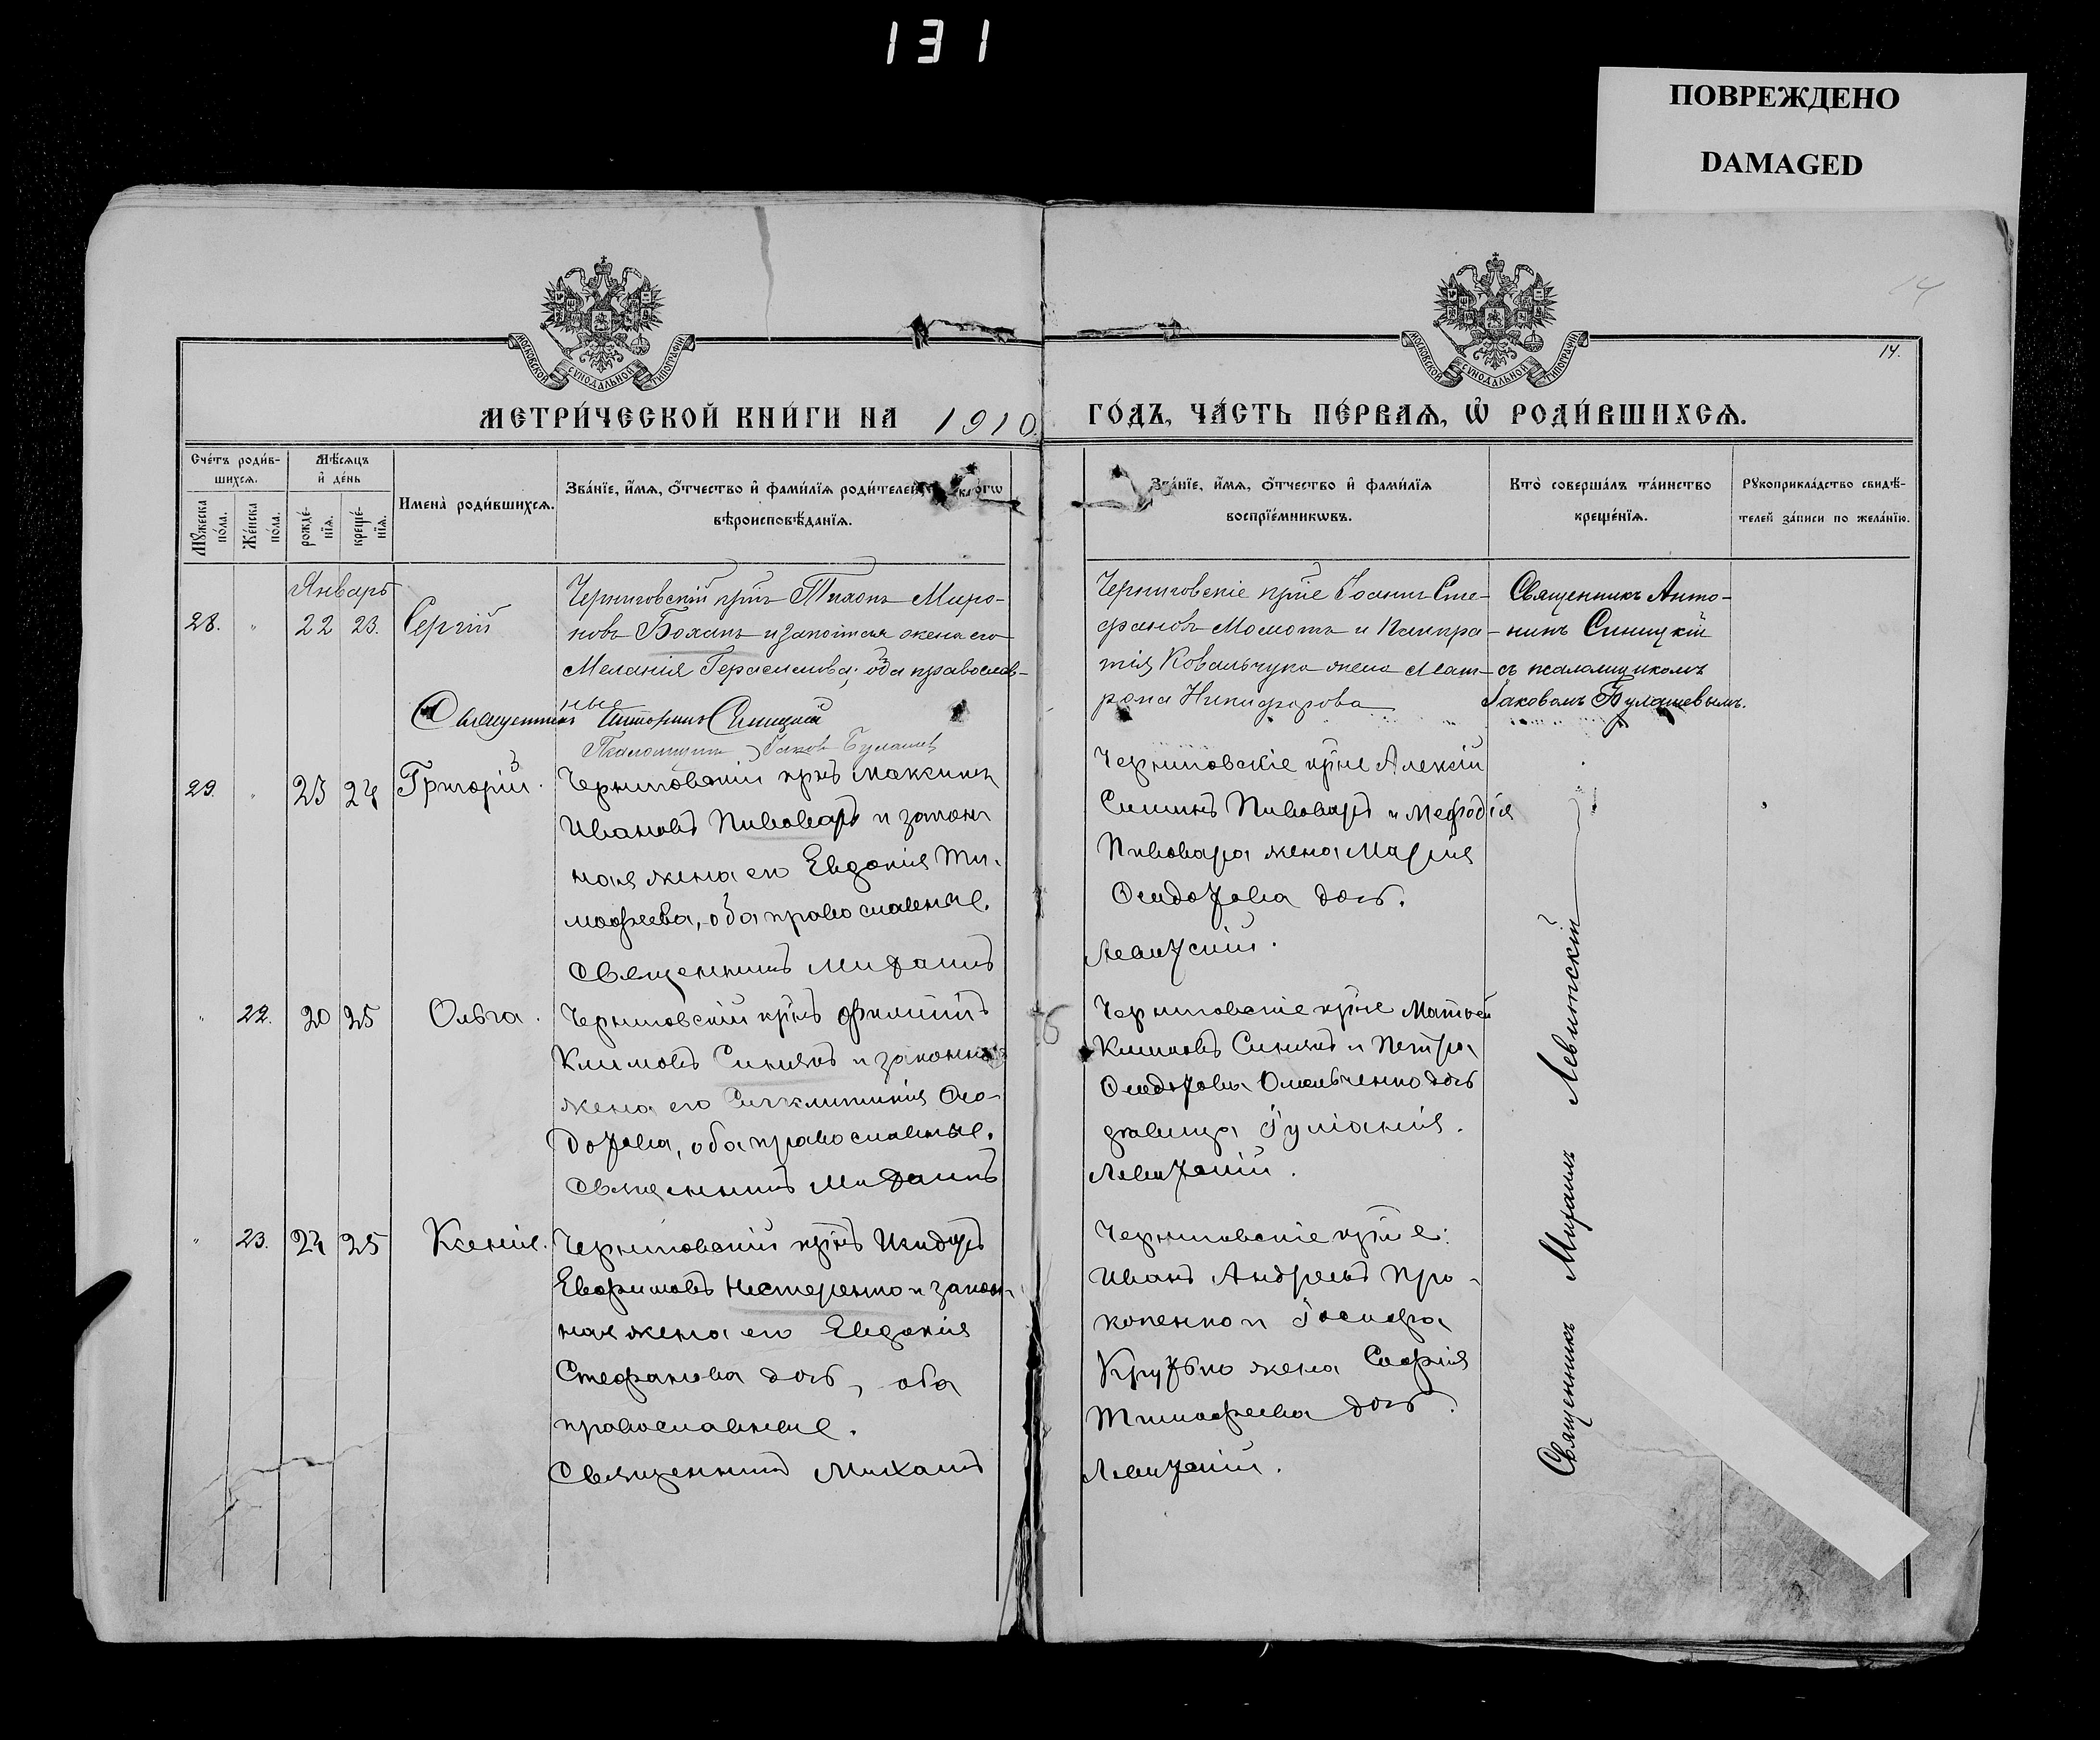 131
ПОВРЕЖДЕНО
DAMAGED
14
14.
МОСКОВСКОЙ СѴНОДАЛЬНОЙ ТИПОГРАФІИ
МОСКОВСКОЙ СѴНОДАЛЬНОЙ ТИПОГРАФІИ
МЕТРИ́ЧЕСКОЙ КНИ́ГИ НА 1910
ГО́ДЪ, ЧА́СТЬ ПЕ́РВАѦ, Ѽ РОДИ́ВШИХСѦ.
Сче́тъ роди́в-
шихсѧ.
Мꙋжеска по́ла.
Же́нска по́ла.
Мѣ́сѧцъ
и҆ де́нь
рожде́-
нїѧ.
креще́-
нїѧ.
Имена̀ роди́вшихсѧ.
Зва́нїе, и҆́мѧ, ѻ҆́тчество и҆ фами́лїѧ роди́телей,
вѣроисповѣ́данїѧ.
Зва́нїе, и҆́мѧ, ѻ҆́тчество и҆ фами́лїѧ
воспрїе́мникѡвъ.
Кто̀ соверша́лъ та́инство
креще́нїѧ.
Рꙋкоприкла́дство свидѣ́-
телей за́писи по жела́нїю.
Январь
28. " 22 23. Сергій
Черниговскій крнъ Тихонъ Миро-
новъ Боханъ и законная жена его
Меланія Герасимова; оба православ-
ные
Священникъ Антонинъ Синицкій
Псаломщикъ Іаковъ Булашев
Черниговскіе крне Іоаннъ Сте-
фановъ Момотъ и Панкра-
тія Ковальчука жена Мат-
рона Никифорова
Священникъ Анто-
нинъ Синицкій
съ псаломщикомъ
Іаковомъ Булашевымъ.
29. " 23 24 Григорій.
Черниговскій крнъ Максимъ
Ивановъ Пивоваръ и закон
ная жена его Евдокія Ти-
мофеева, оба православные.
Священникъ Михаилъ
Черниговскіе крне Алексій
Симинъ Пивоваръ и Мефодія
Пивовара жена Марія
Феодорова дочь.
Левитскій.
" 22. 20 25 Ольга.
Черниговскій крнъ Филиппъ
Климовъ Синякъ и законная
жена его Синклитикія Фео-
дорова, оба православные.
Священникъ Михаилъ
Черниговскіе крне Матвей
Климовъ Синякъ и Петра
Феодорова Омельченко дочь
девица Іуліанія.
Левитскій.
" 23. 24 25 Ксенія.
Черниговскій крнъ Исидоръ
Евфимовъ Нестеренко и закон-
ная жена его Евдокія
Стефанова дочь, оба
православные.
Священникъ Михаилъ
Черниговскіе крне:
Иванъ Андреевъ Про-
копенко и Іосифа
жена Софія
Тимофеева дочь.
Левитскій.
Священникъ Михаилъ Левитскій